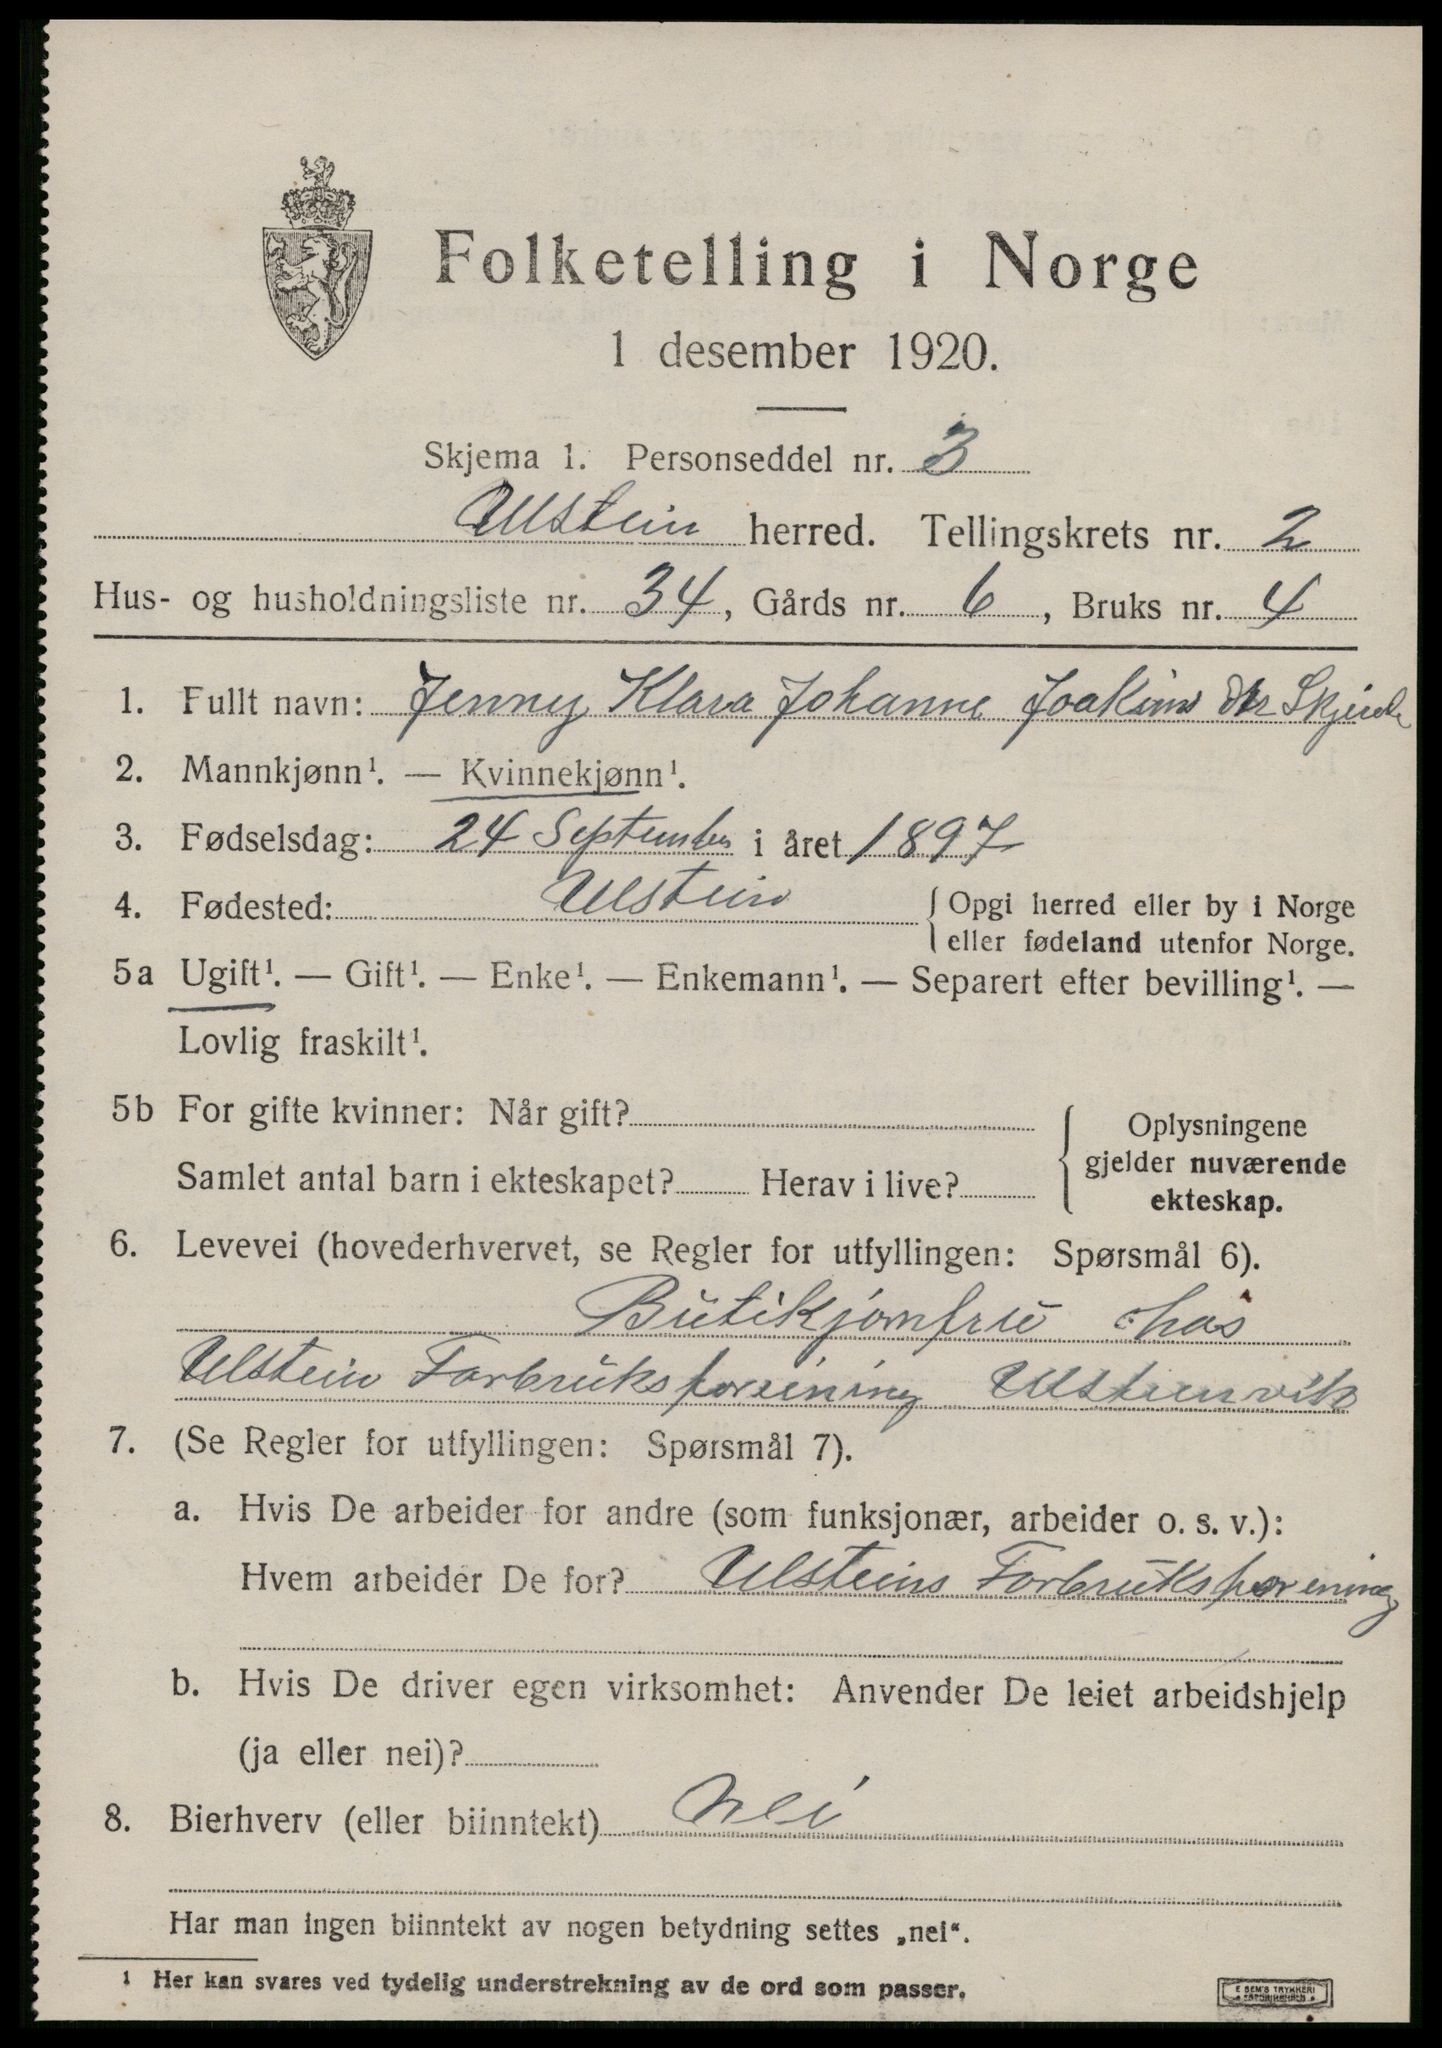 Folketelling i Norge
1 desember 1920.
Skjema 1. Personseddel nr. 3
Ulstein herred. Tellingskrets nr. 2
Hus- og husholdningsliste nr. 34, Gårds nr. 6, Bruks nr. 4
1. Fullt navn: Jenny Klara Johanne Joakims
2. Mannkjønn¹. — Kvinnekjønn¹.
3. Fødselsdag: 24 September i året 1897
4. Fødested: Ulstein { Opgi herred eller by i Norge
eller fødeland utenfor Norge.
5a Ugift¹. — Gift¹. — Enke¹. — Enkemann¹. — Separert efter bevilling¹. —
Lovlig fraskilt¹.
5b For gifte kvinner: Når gift? { Oplysningene
gjelder nuværende
Samlet antal barn i ekteskapet? Herav i live?
ekteskap.
6. Levevei (hovederhvervet, se Regler for utfyllingen: Spørsmål 6).
Butikjomfru hos
Ulstein Forbruksforening Ulsteinvik
7. (Se Regler for utfyllingen: Spørsmål 7).
a. Hvis De arbeider for andre (som funksjonær, arbeider o. s. v.):
Hvem arbeider De for? Ulsteins Forbruksforening
b. Hvis De driver egen virksomhet: Anvender De leiet arbeidshjelp
(ja eller nei)?
8. Bierhverv (eller biinntekt) Nei
Har man ingen biinntekt av nogen betydning settes „nei“.
¹ Her kan svares ved tydelig understrekning av de ord som passer.
E SEM'S TRYKKERI